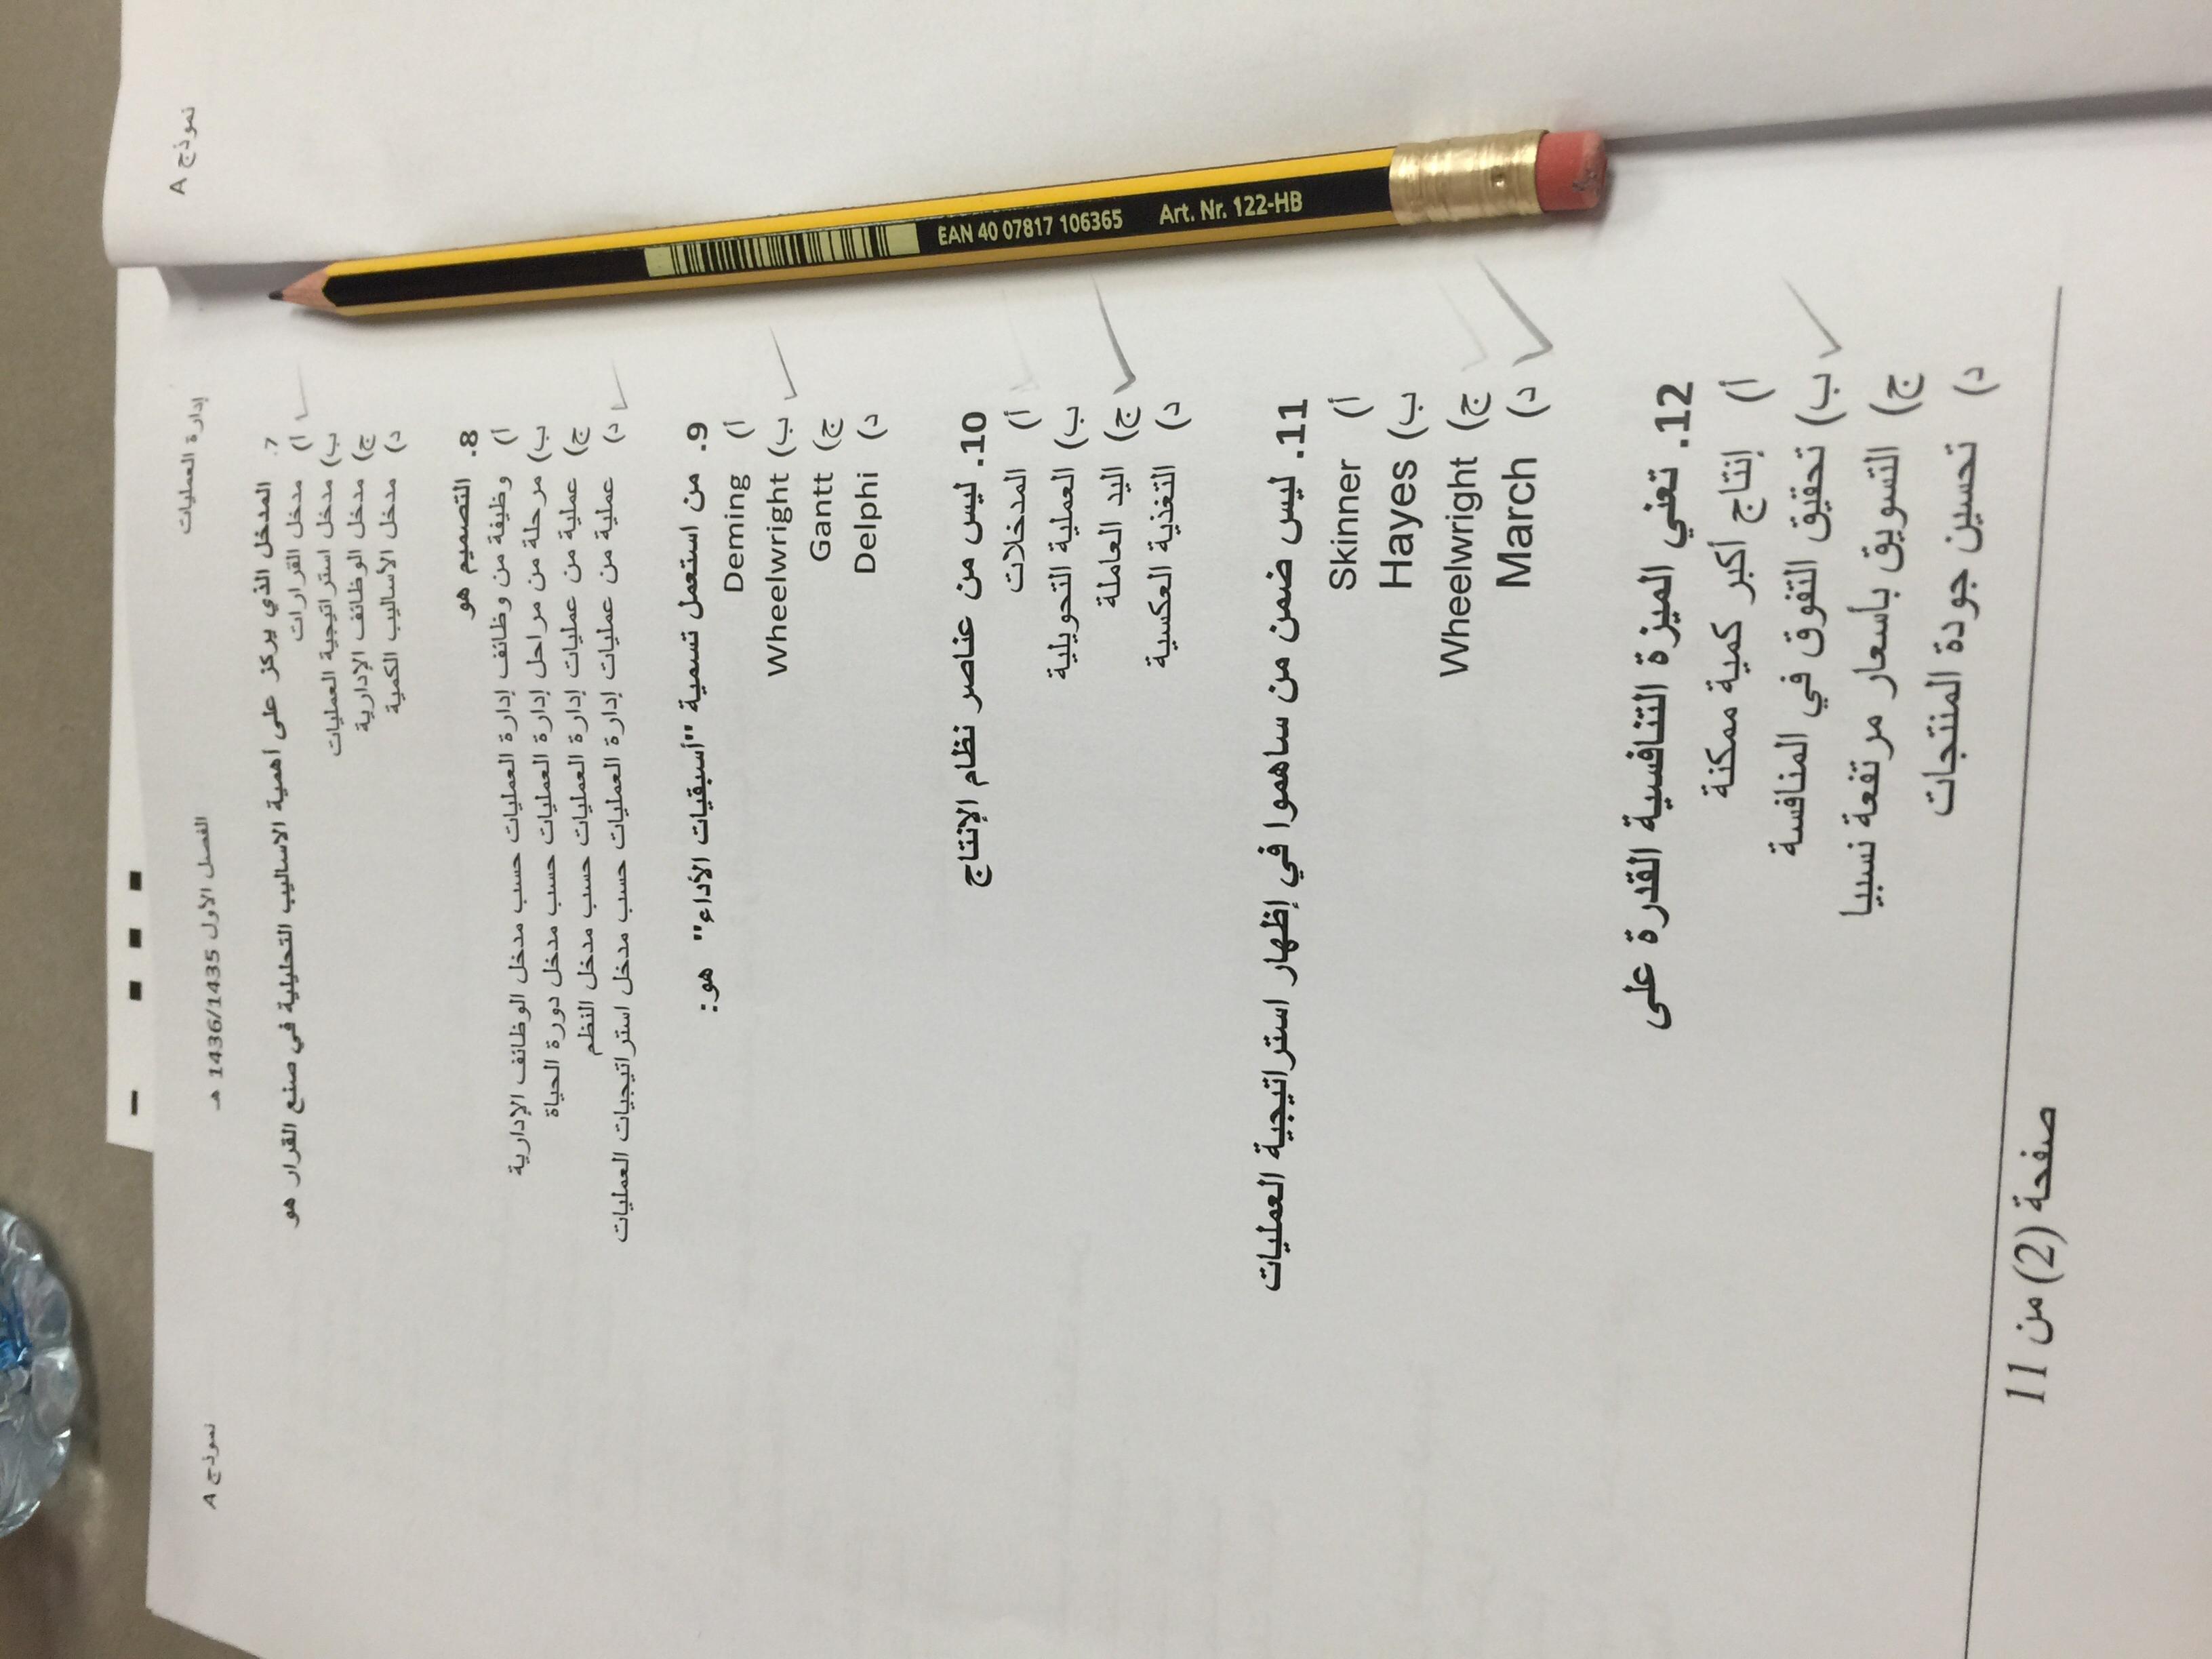 نموذج A
إدارة العمليات
الفصل الأول 1436/1435 هـ
نموذج A
7. المدخل الذي يركز على اهمية الاساليب التحليلية في صنع القرار هو
أ) مدخل القرارات
ب) مدخل استراتيجية العمليات
ج) مدخل الوظائف الإدارية
د) مدخل الأساليب الكمية
8. التصميم هو
أ) وظيفة من وظائف إدارة العمليات حسب مدخل الوظائف الإدارية
ب) مرحلة من مراحل إدارة العمليات حسب مدخل دورة الحياة
ج) عملية من عمليات إدارة العمليات حسب مدخل النظم
د) عملية من عمليات إدارة العمليات حسب مدخل استراتيجيات العمليات
9. من استعمل تسمية "أسبقيات الأداء" هو:
أ) Deming
ب) Wheelwright
ج) Gantt
د) Delphi
10. ليس من عناصر نظام الإنتاج
أ) المدخلات
ب) العملية التحويلية
ج) اليد العاملة
د) التغذية العكسية
11. ليس ضمن من ساهموا في إظهار استراتيجية العمليات
أ) Skinner
ب) Hayes
ج) Wheelwright
د) March
12. تعني الميزة التنافسية القدرة على
أ) إنتاج أكبر كمية ممكنة
ب) تحقيق التفوق في المنافسة
ج) التسويق بأسعار مرتفعة نسبيا
د) تحسين جودة المنتجات
صفحة (2) من 11
EAN 40 07817 106365 Art. Nr. 122-HB